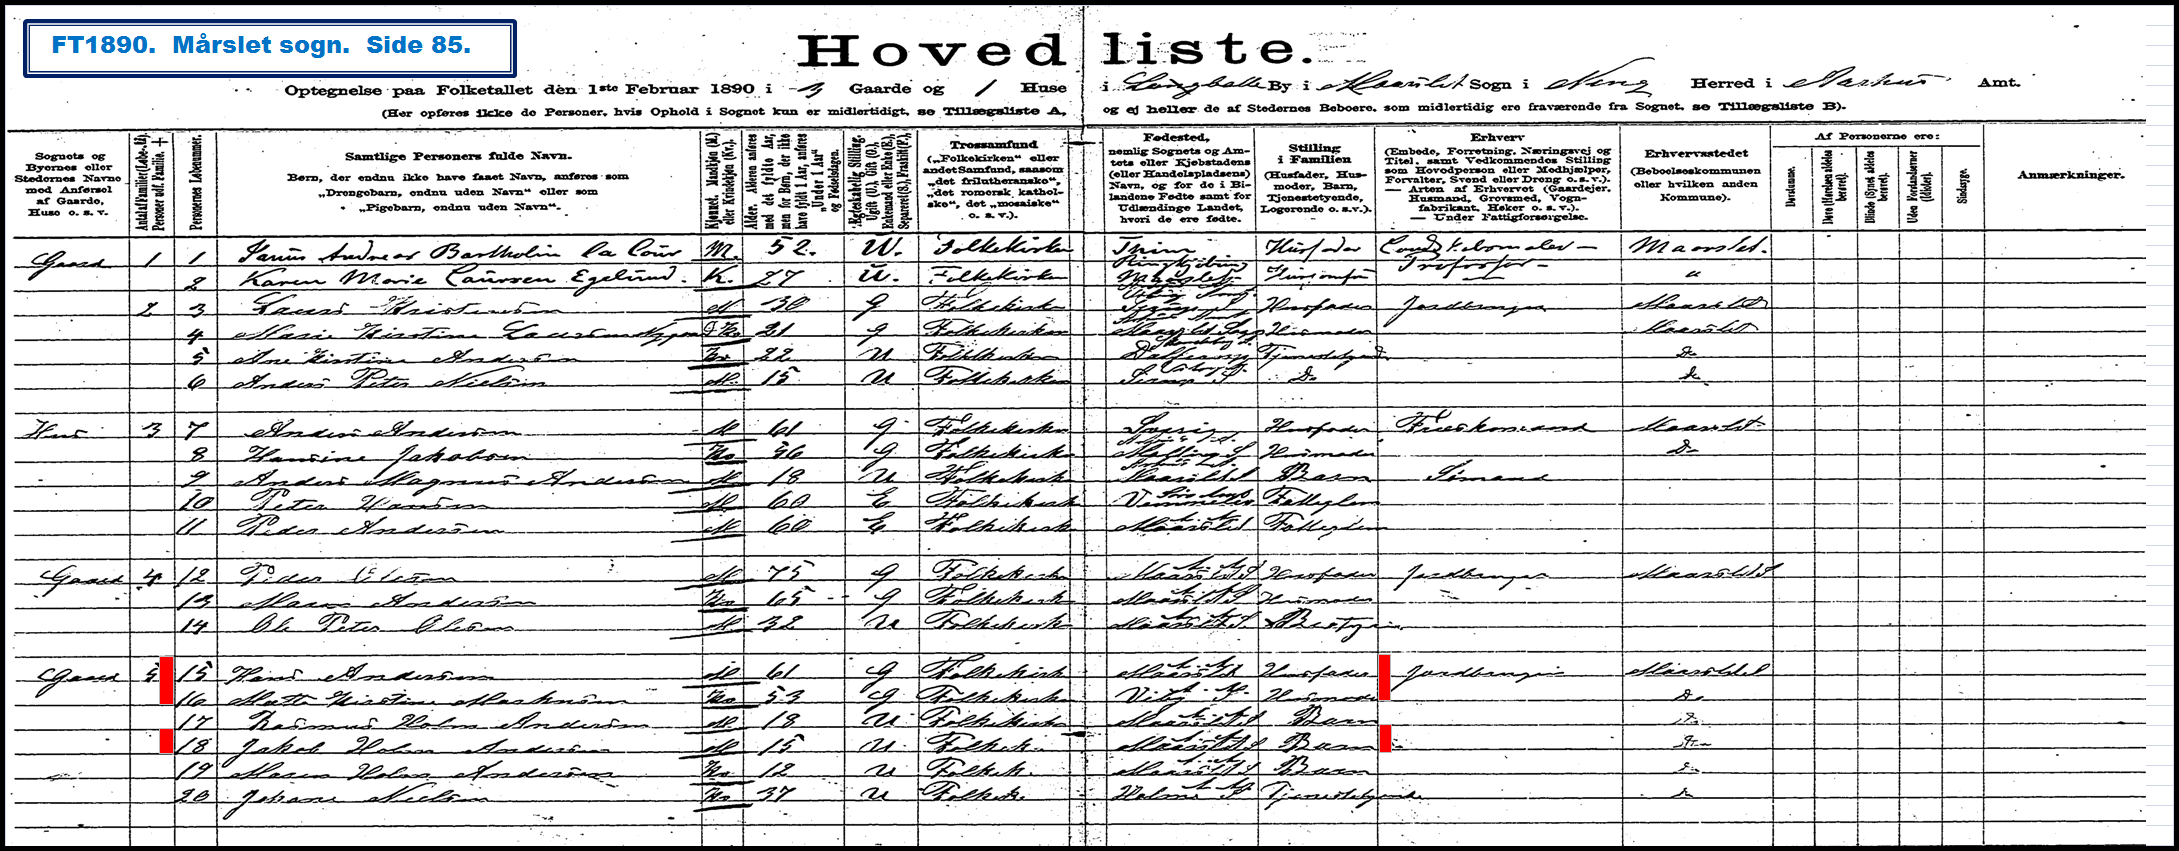 FT1890. Mårslet sogn. Side 85.
Hovedliste.
Optegnelse paa Folketallet den 1ste Februar 1890 i 3 Gaarde og 1 Huse i Langballe By i Maarslet Sogn i Ning Herred i Aarhus Amt.
(Her opføres ikke de Personer, hvis Ophold i Sognet kun er midlertidigt, se Tillægsliste A, og ej heller de af Stedernes Beboere, som midlertidig ere fraværende fra Sognet, se Tillægsliste B).
Sognets og Byernes eller Stedernes Navne med Anførsel af Gaarde, Huse o. s. v.
Personernes Løbenummer.
Samtlige Personers fulde Navn.
Børn, der endnu ikke have faaet Navn, anføres som
„Drengebarn, endnu uden Navn“ eller som
„Pigebarn, endnu uden Navn“.
Kjønnet. Mandkjøn (M.) eller Kvindekjøn (Kv.).
Alder. Alderen anføres med det fyldte Aar, men for Børn, der ikke have fyldt 1 Aar, anføres „Under 1 Aar“ og Fødselsdagen.
Ægteskabelig Stilling. Ugift (U.), Gift (G.), Enkemand eller Enke (E.), Separeret (S.), Fraskilt (F.).
Trossamfund („Folkekirken“ eller andet Samfund, saasom „det frilutheranske“, „det romersk katholske“, „det mosaiske“ o. s. v.).
Fødested, nemlig Sognets og Amtets eller Kjøbstadens (eller Handelspladsens) Navn, og for de i Bilandene Fødte samt for Udlændinge Landet, hvori de ere fødte.
Stilling i Familien (Husfader, Husmoder, Barn, Tjenestetyende, Logerende o. s. v.).
Erhverv (Embede, Forretning, Næringsvej og Titel, samt Vedkommendes Stilling som Hovedperson eller Medhjælper, Forvalter, Svend eller Dreng o. s. v.). — Arten af Erhvervet (Gaardejer, Husmand, Grovsmed, Vognfabrikant, Høker o. s. v.). — Under Fattigforsørgelse.
Erhvervsstedet (Beboelseskommunen eller hvilken anden Kommune).
Af Personerne ere:
Døvstumme.
Døve (Hørelsen aldeles berøvet).
Blinde (Synet aldeles berøvet).
Uden Forstandsevner (Idioter).
Sindssyge.
Anmærkninger.
Gaard 1 1 Janus Andreas Bartholin la Cour M. 52. U. Folkekirken Husfader Landskabsmaler — Professor — Maarslet.
2 Karen Marie Laursen Egelund. K. 27 U. Folkekirken "
2 3 M 30 G Folkekirken Husfader Jordbruger Maarslet
4 Marie Kirstine Kv 21 G Folkekirken Maarslet Sogn Husmoder Maarslet
5 Ane Kirstine Andersen Kv 22 U Folkekirken Tjenestetyende Do
6 Anders Peter Nielsen M. 15 U Folkekirken Do Do
Hus 3 7 Anders Andersen M 61 G Folkekirken Husfader Maarslet
8 Hansine Jakobsen Kv G Folkekirken Malling S Husmoder Do
9 Anders Magnus Andersen M 18 U Folkekirk Maarslet S Barn Sømand
10 Peter Hansen M 60 E Folkekirk Fattiglem
11 Peder Andersen M 60 E Folkekirk Maarslet Fattiglem
Gaard 4 12 Peder Olesen M 75 G Folkekirk Maarslet S Husfader Jordbruger Maarslet S
13 Maren Andersen Kv 65 G Folkekirk Maarslet S Husmoder
14 Ole Peter Olesen M 32 U Folkekirk Maarslet S
Gaard 5 15 Hans Andersen M 61 G Folkekirk Maarslet Husfader Jordbruger Maarslet
16 Mette Kirstine Kv 53 G Folkekirk Viby S Husmoder Do
17 Rasmus Holm Andersen M. 18 U Folkekirk Maarslet S Barn Do
18 Jakob Holm Andersen M 15 U Folkek. Maarslet S Barn Do
19 Maren Holm Andersen Kv 12 U Folkek. Maarslet S Barn Do
20 Johane Nielsen Kv 37 U Folkek. Holme S Tjenestetyende Do